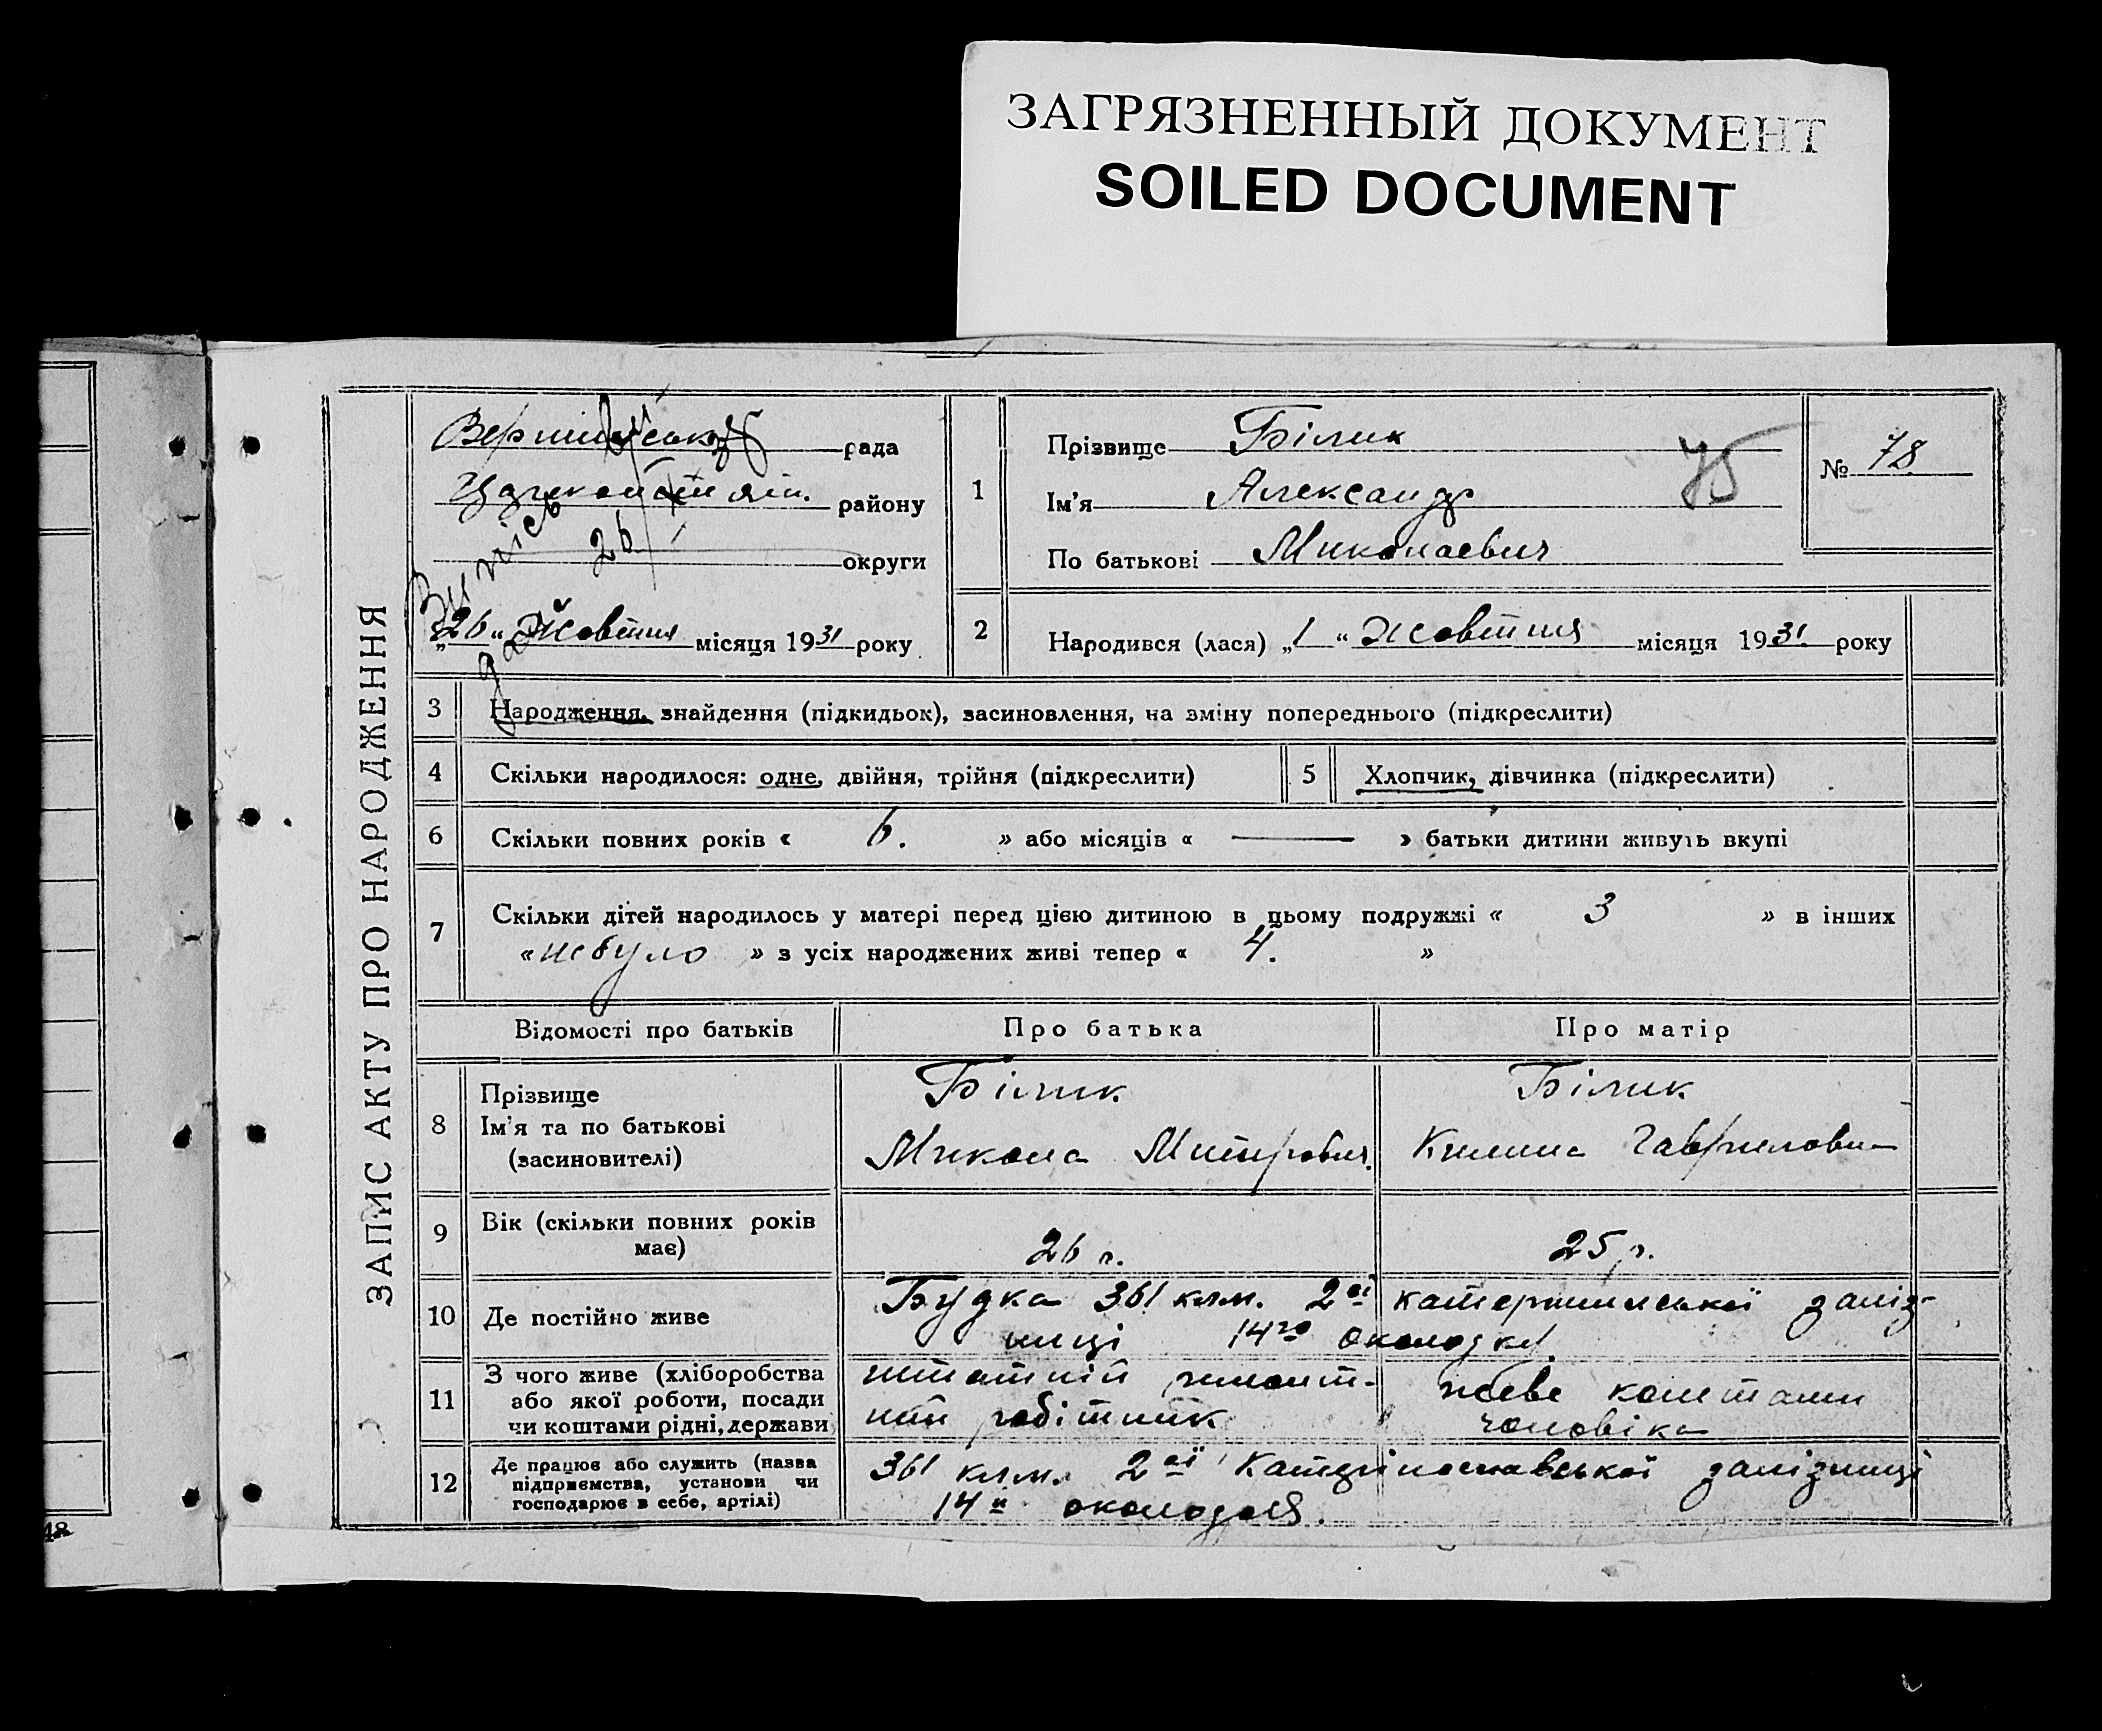 ЗАГРЯЗНЕННЫЙ ДОКУМЕНТ
SOILED DOCUMENT
ЗАПИС АКТУ ПРО НАРОДЖЕННЯ
рада
району
округи
Випись
26
„26“ Жовтня місяця 1931 року
1
Прізвище Білик
Ім'я Александр
По батькові Миколаевич
75
№ 78
2
Народився (лася) „1“ Жовтня місяця 1931 року
3 Народження, знайдення (підкидьок), засиновлення, на зміну попереднього (підкреслити)
4 Скільки народилося: одне, двійня, трійня (підкреслити)
5 Хлопчик, дівчинка (підкреслити)
6 Скільки повних років « 6. » або місяців « — » батьки дитини живуть вкупі
7 Скільки дітей народилось у матері перед цією дитиною в цьому подружжі « 3 » в інших
« небуло » з усіх народжених живі тепер « 4. »
Відомості про батьків Про батька Про матір
8 Прізвище
Ім'я та по батькові
(засиновителі)
Білик
Микола
Білик
Килина Гавриловна
9 Вік (скільки повних років
має)
26 р.
25 р.
10 Де постійно живе
Будка 361 клм. 2ої катерининської заліз-
ниці 14го околодку.
11 З чого живе (хліборобства
або якої роботи, посади
чи коштами рідні, держави
штатній ремонт-
ний робітник
живе коштами
чоловіка
12 Де працює або служить (назва
підприємства, установи чи
господарює в себе, артілі)
361 клм. 2ої Катеринославської залізниці
14й
48